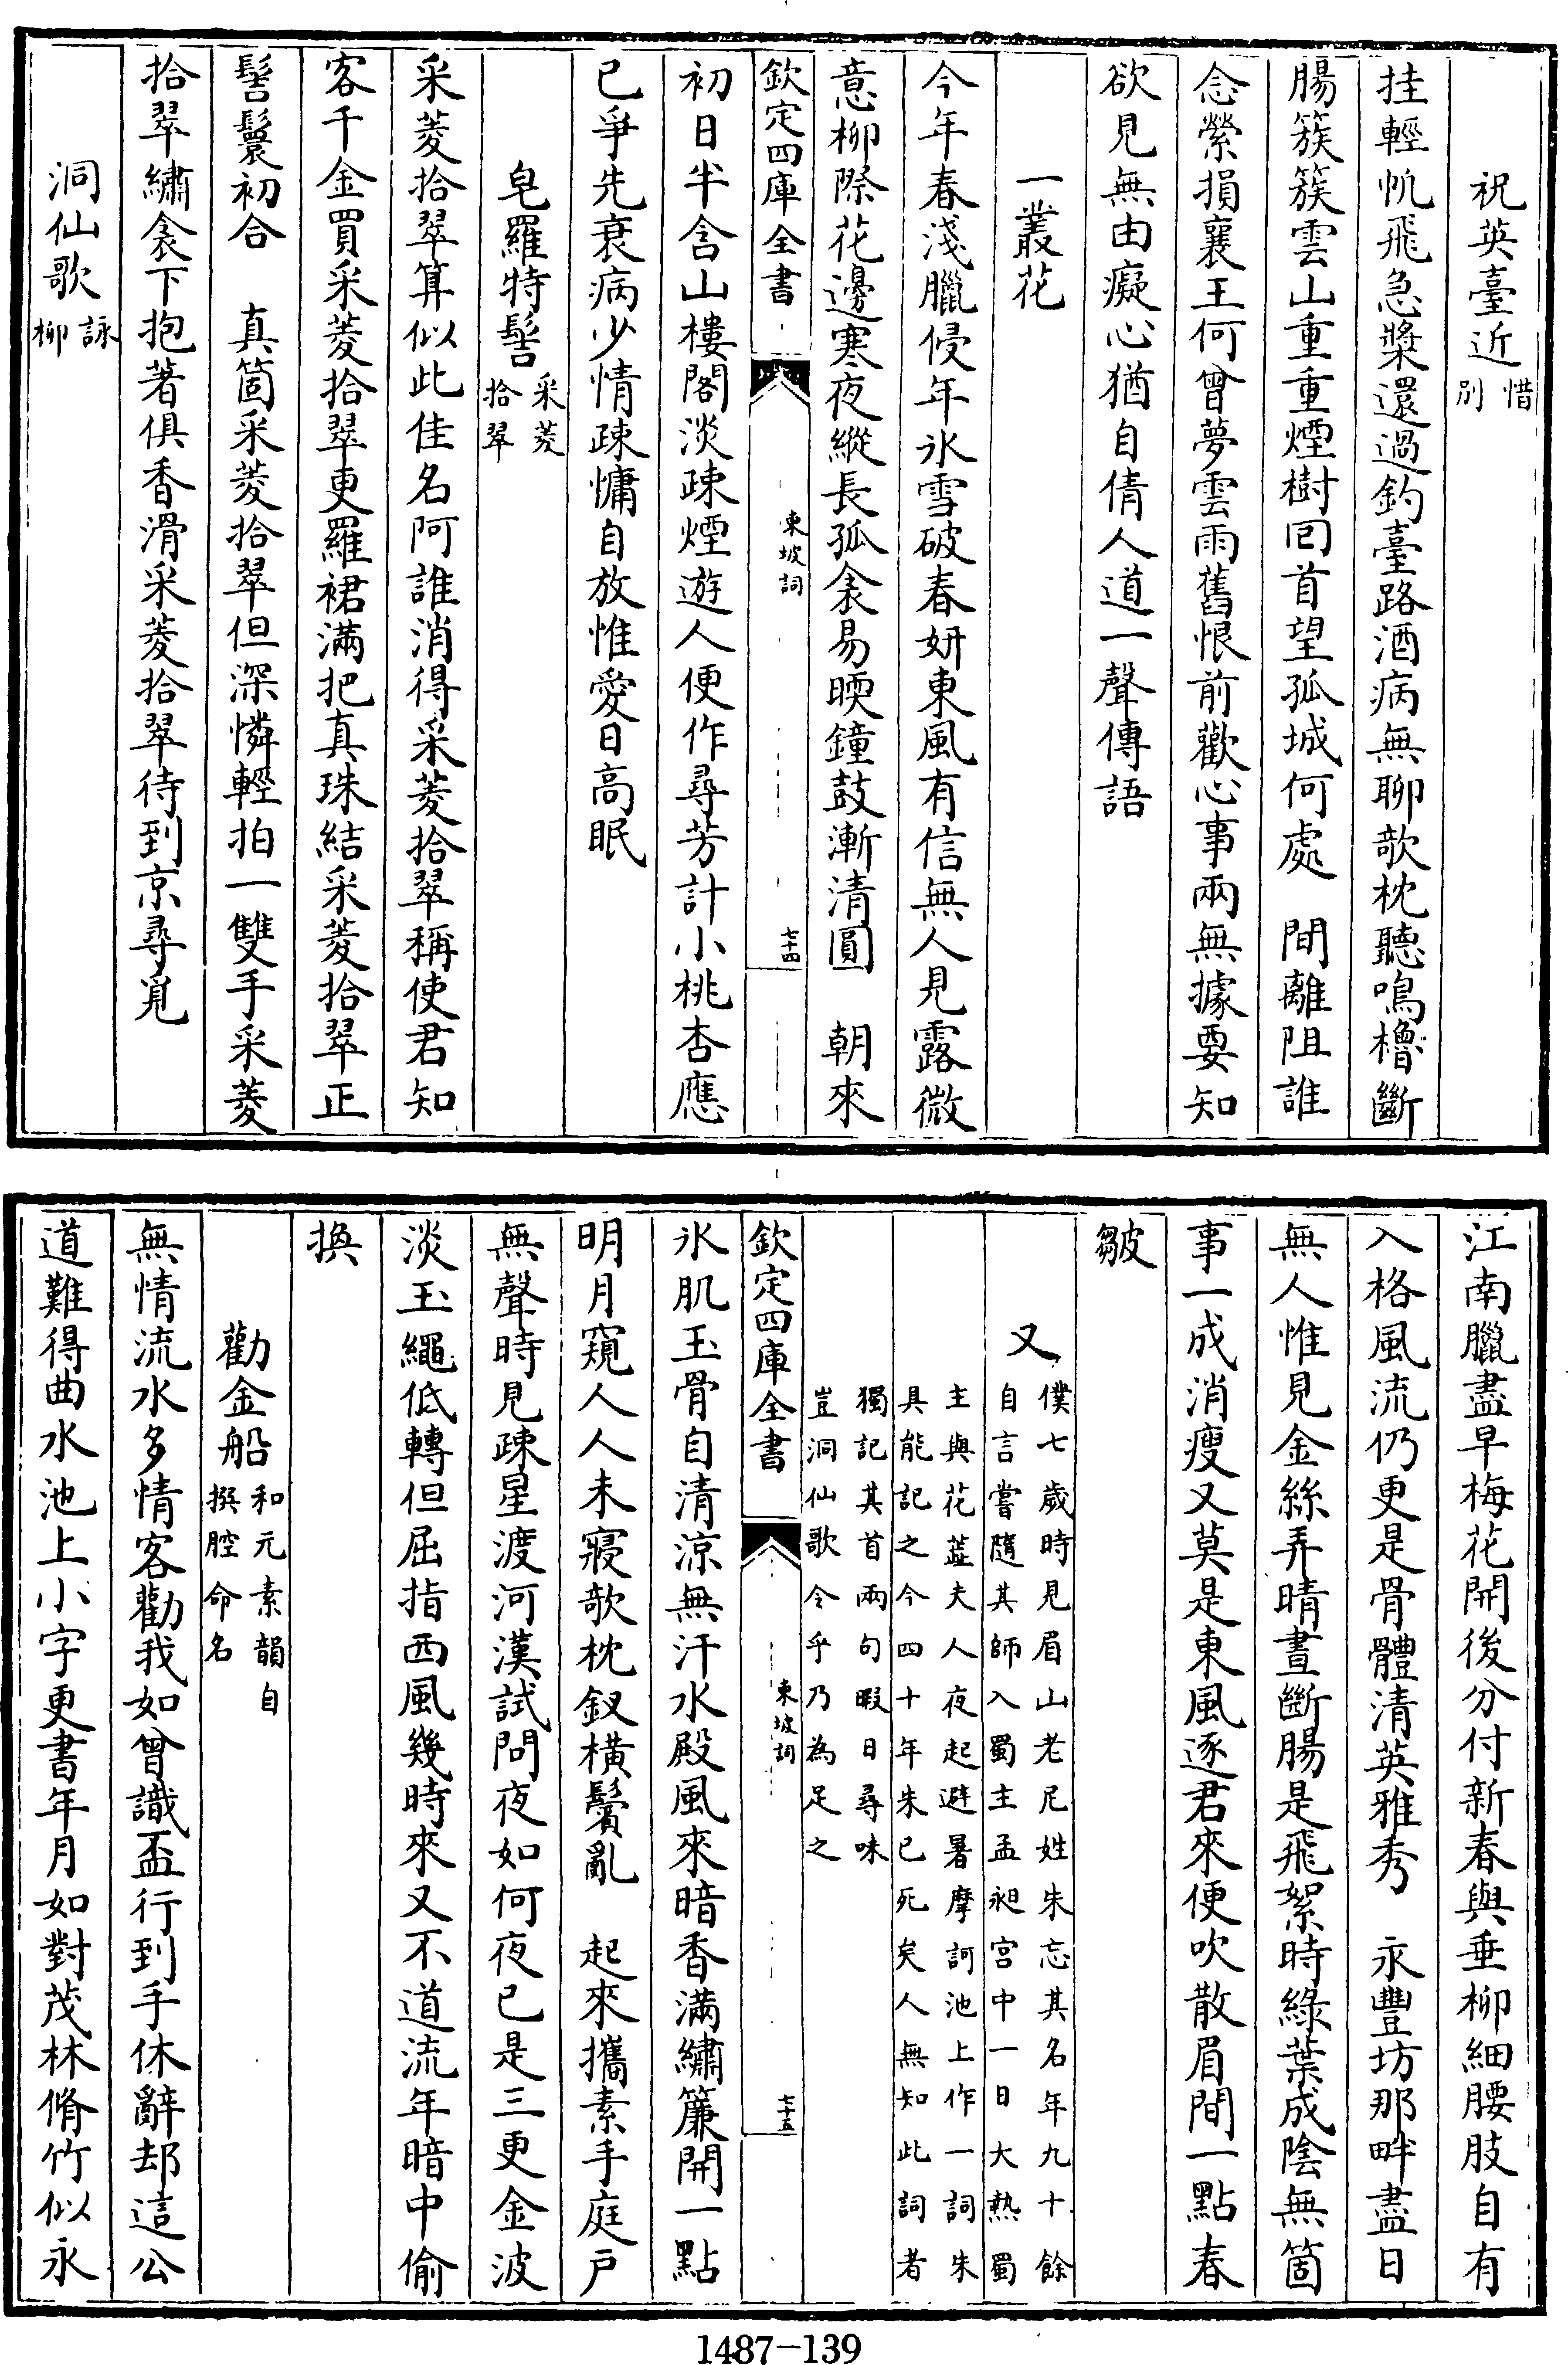 祝英臺近惜別
挂輕帆飛急槳還過釣臺路酒病無聊欹枕聽鳴櫓斷
腸簇簇雲山重重煙樹回首望孤城何處　間離阻誰
念縈損襄王何曾夢雲雨舊恨前歡心事兩無據要知
欲見無由癡心猶自倩人道一聲傳語
一叢花
今年春淺臘侵年氷雪破春妍東風有信無人見露微
意柳際花邊寒夜縱長孤衾易暝鐘鼓漸清圓　朝來
欽定四庫全書
東坡詞
七十四
初日半含山樓閣淡疎煙遊人便作尋芳計小桃杏應
已爭先衰病少情疎慵自放惟愛日高眠
皂羅特髻采菱拾翠
采菱拾翠算似此佳名阿誰消得采菱拾翠稱使君知
客千金買采菱拾翠更羅裙滿把真珠結采菱拾翠正
髻鬟初合　真箇采菱拾翠但深憐輕拍一雙手采菱
拾翠繡衾下抱著俱香滑采菱拾翠待到京尋覓
洞仙歌詠柳
江南臘盡早梅花開後分付新春與垂柳細腰肢自有
入格風流仍更是骨體清英雅秀　永豐坊那畔盡日
無人惟見金絲弄晴晝斷腸是飛絮時綠葉成陰無箇
事一成消瘦又莫是東風逐君來便吹散眉間一點春
皺
又僕七歲時見眉山老尼姓朱忘其名年九十餘
自言嘗隨其師入蜀主孟昶宫中一日大熱蜀
主與花蕊夫人夜起避暑摩訶池上作一詞朱
具能記之今四十年朱已死矣人無知此詞者
獨記其首兩句暇日尋味
豈洞仙歌令乎乃為足之
欽定四庫全書
東坡詞
七十五
氷肌玉骨自清涼無汗水殿風來暗香滿繡簾開一點
明月窺人人未寢欹枕釵橫鬢亂　起來攜素手庭戶
無聲時見疎星渡河漢試問夜如何夜已是三更金波
淡玉繩低轉但屈指西風幾時來又不道流年暗中偷
換
勸金船和元素韻自撰腔命名
無情流水多情客勸我如曾識盃行到手休辭却這公
道難得曲水池上小字更書年月如對茂林脩竹似永
1487-139